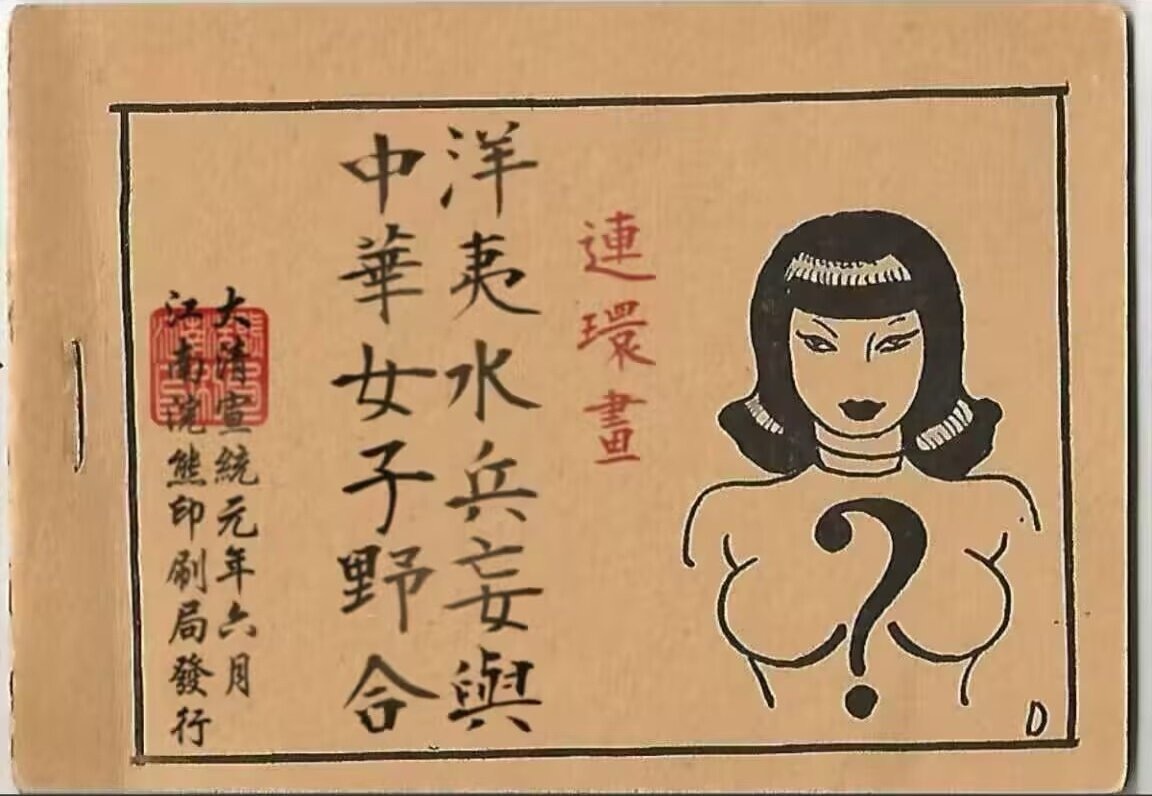 連環畫
洋夷水兵妄與
中華女子野合
大清宣統元年六月
江南浣熊印刷局發行
?
D